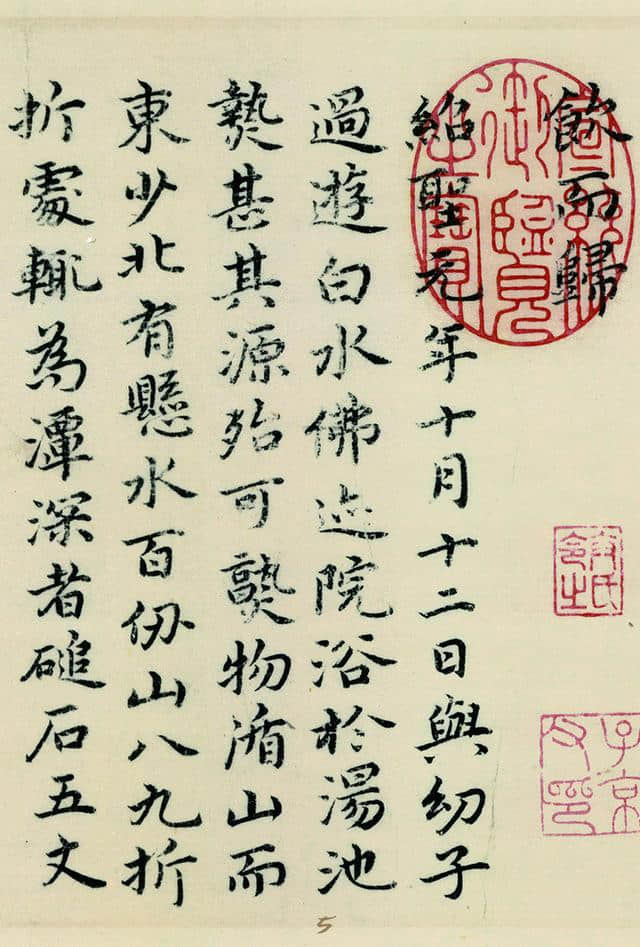 飲而歸
紹聖元年十月十二日與幼子
過遊白水佛迹院浴於湯池
熱甚其源殆可熟物循山而
東少北有懸水百仞山八九折
折處輒為潭深者磓石五丈
宣統御覽之寶
子京父印
5